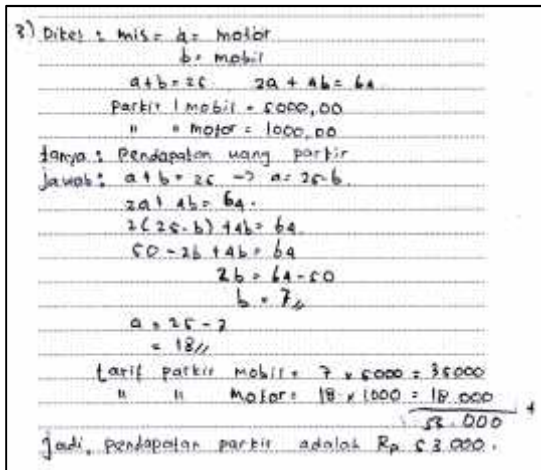 3) Diket : mis = a = motor
b = mobil
a + b = 25 2a + 4b = 64
Parkir 1 mobil = 5000,00
" " motor = 1000,00
tanya : Pendapatan uang parkir
jawab : a + b = 25 -> a = 25 - b
2a + 4b = 64.
2(25-b) + 4b = 64
50 - 2b + 4b = 64
2b = 64 - 50
b = 7//
a = 25 - 7
= 18//
tarif parkir mobil = 7 x 5000 = 35000
" " motor = 18 x 1000 = 18.000
53.000 +
jadi, pendapatan parkir adalah Rp 53.000.